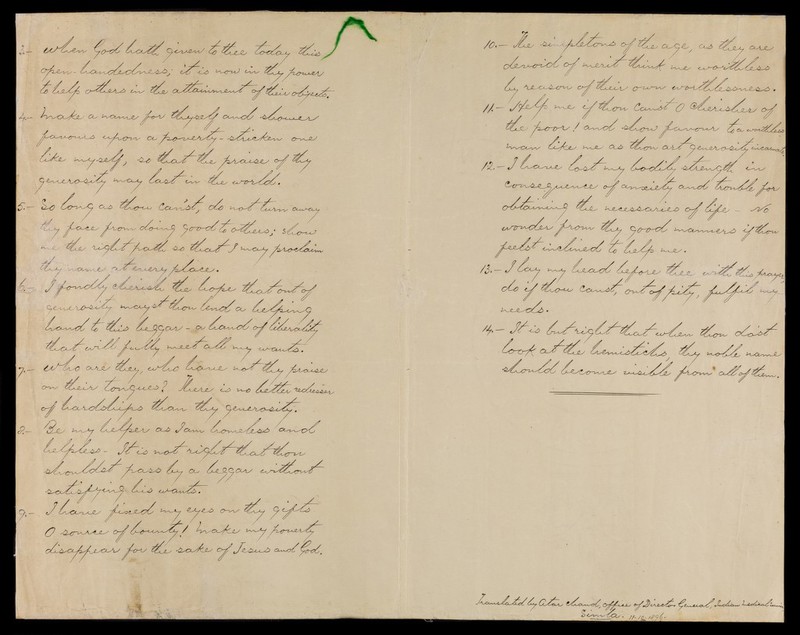 3.- when God hath given to thee today this
open-handedness; it is now in thy power
to help others in the attainment of their objects.
4.- make a name for thyself and shower
favours upon a poverty-stricken one
like myself, so that the praise of thy
generosity may last in the world.
5.- So long as thou can'st, do not turn away
thy face from doing good to others; show
me the right path so that I may proclaim
thy name at every place.
6.- I fondly cherish the hope that out of
generosity mayst thou lend a helping
hand to this beggar - a hand of liberality
that will fully meet all my wants.
7.- who are they, who have not thy praise
on their tongues? There is no better
of hardships than thy generosity.
8.- Be my helper as I am homeless and
helpless - It is not right that thou
shouldst pass by a beggar without
satisfying his wants.
9.- I have fixed my eyes on thy gifts
O source of bounty! make my poverty
disappear for the sake of Jesus and God.
10.- The simpletons of the age, as they are
devoid of merit think me worthless
by reason of their own worthlessness.
11.- Help me if thou canst O Cherisher of
the poor! and show favour to a worthless
man like me as thou art generosity incarnate
12.- I have lost my bodily strength in
consequence of anxiety and trouble for
obtaining the necessaries of life - No
wonder from thy good manners if thou
feelst inclined to help me.
13.- I lay my head before thee with this prayer,
do if thou canst, out of pity, fulfil my
needs.
14.- It is but right that when thou dost
look at the hemistichs, thy noble name
should become visible from all of them.
Translated by Atar Chand, office of Director General, Indian
Simla.